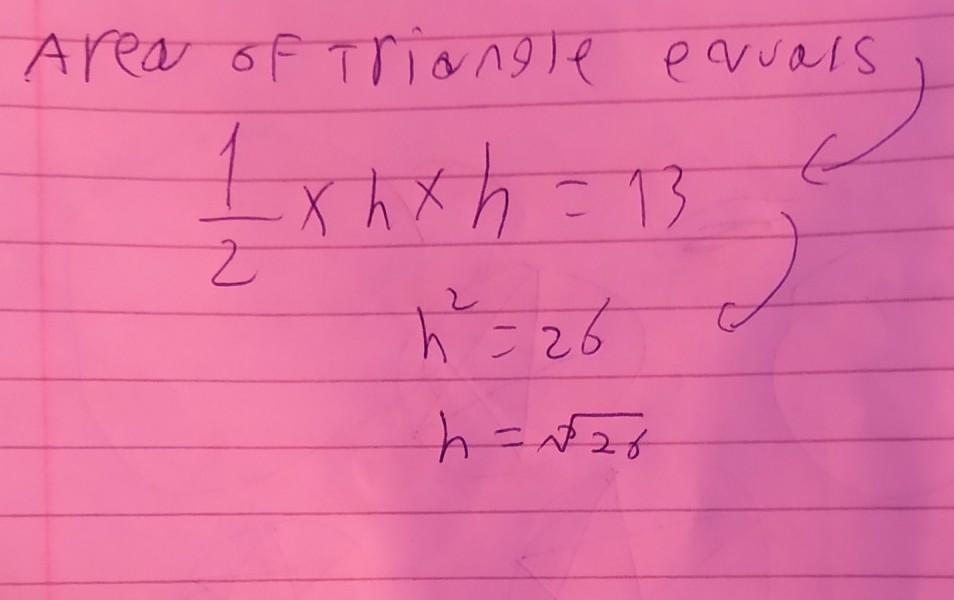 Area of Triangle equals
1/2 × h × h = 13
h² = 26
h = √26